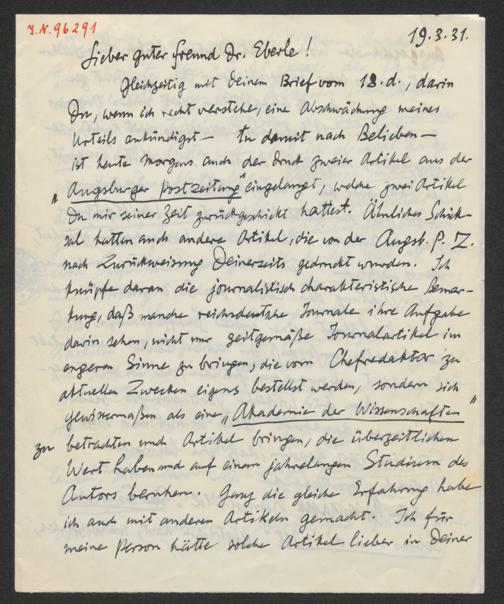 J.N. 96291
19.3.31.
Lieber guter Freund Dr. Eberle!
Gleichzeitig mit Deinem Brief vom 18. d., darin
Du, wenn ich recht verstehe, eine Abschwächung meines
Urteils ankündigst — tu damit nach Belieben —
ist heute morgens auch der Druck zweier Artikel aus der
„Augsburger Postzeitung" eingelangt, welche zwei Artikel
Du mir seiner Zeit zurückgeschickt hattest. Ähnliches Schick-
sal hatten auch andere Artikel, die von der Augsb. P. Z.
nach Zurückweisung Deinerseits gedruckt wurden. Ich
knüpfe daran die journalistisch charakteristische Bemer-
kung, daß manche reichsdeutsche Journale ihre Aufgabe
darin sehen, nicht nur zeitgemäße Journalartikel im
engeren Sinne zu bringen, die vom Chefredaktor zu
aktuellen Zwecken eigens bestellt werden, sondern sich
gewissermaßen als eine „Akademie der Wissenschaften"
zu betrachten und Artikel bringen, die überzeitlichen
Wert haben und auf einem jahrelangen Studium des
Autors beruhen. Ganz die gleiche Erfahrung habe
ich auch mit anderen Artikeln gemacht. Ich für
meine Person hätte solche Artikel lieber in Deiner